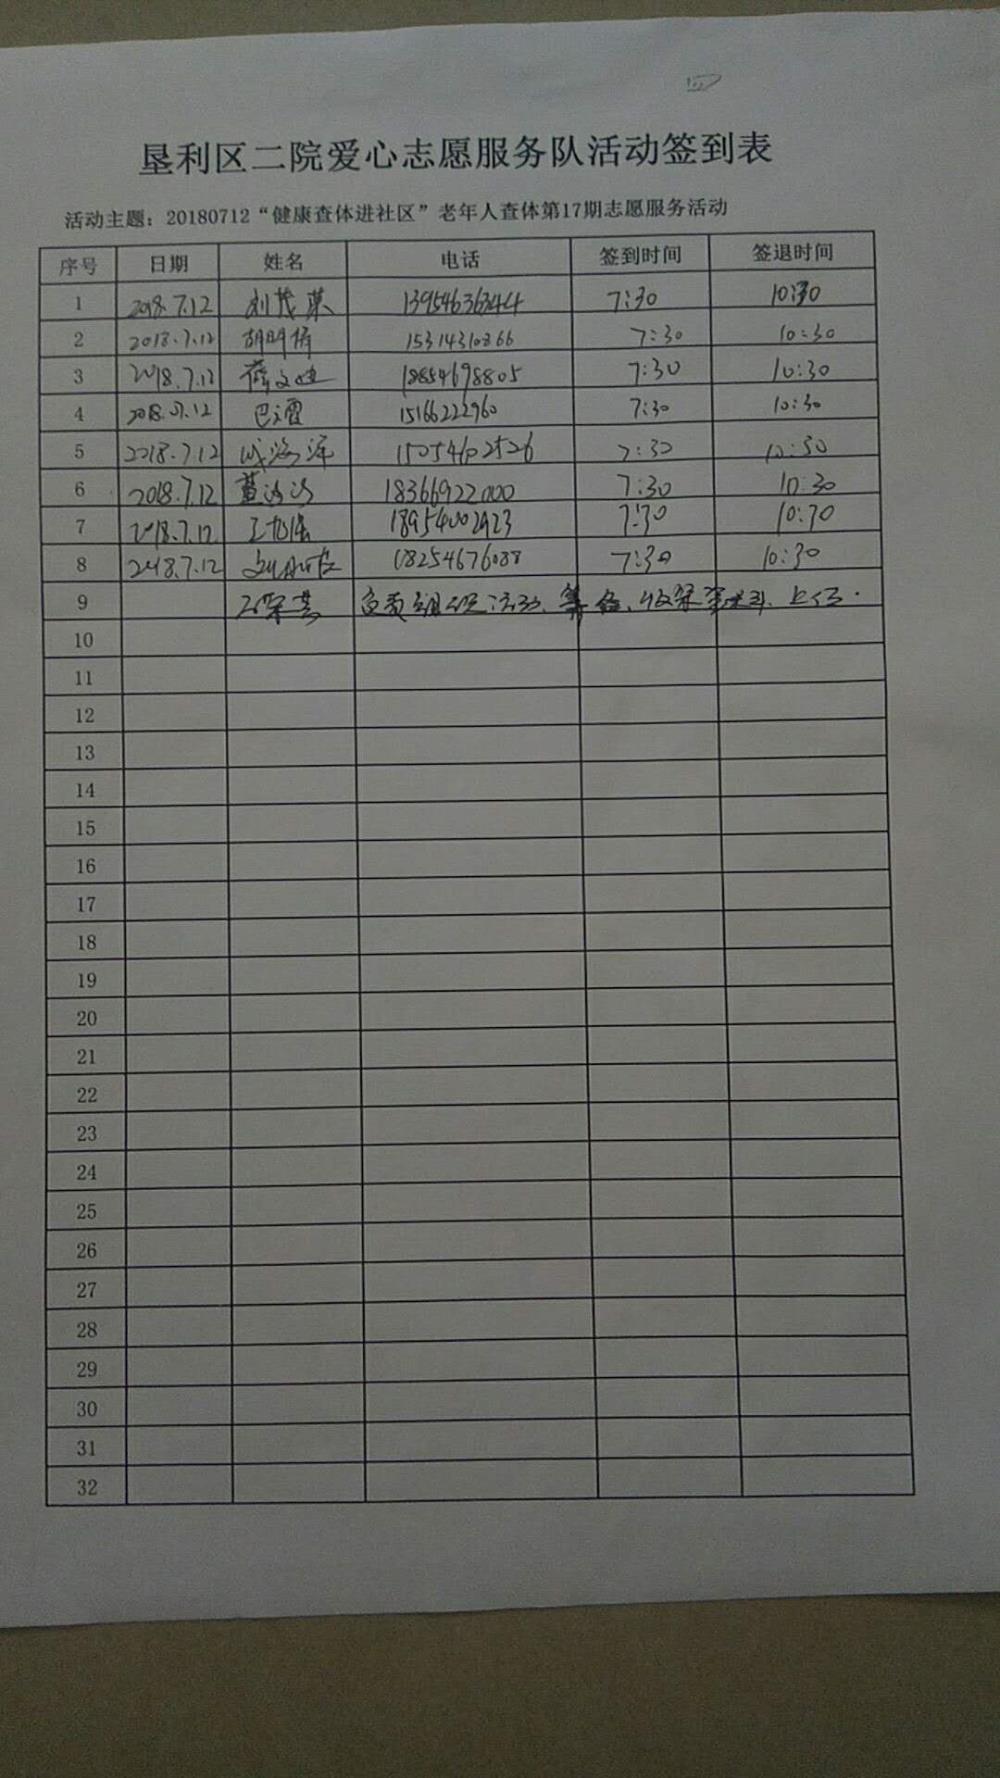 垦利区二院爱心志愿服务队活动签到表
活动主题：20180712“健康查体进社区”老年人查体第17期志愿服务活动
序号 日期 姓名 电话 签到时间 签退时间
1 2018.7.12 刘茂 13954636344 7:30 10:30
2 2018.7.12 胡明 15314310866 7:30 10:30
3 2018.7.12 薛文 18854698805 7:30 10:30
4 2018.7.12 巴文霞 15166222960 7:30 10:30
5 2018.7.12 15054602526 7:30 10:30
6 2018.7.12 18366922000 7:30 10:30
7 2018.7.12 18954002923 7:30 10:30
8 2018.7.12 18254676088 7:30 10:30
9 负责组织活动、筹备、收集资料、上传.
10
11
12
13
14
15
16
17
18
19
20
21
22
23
24
25
26
27
28
29
30
31
32